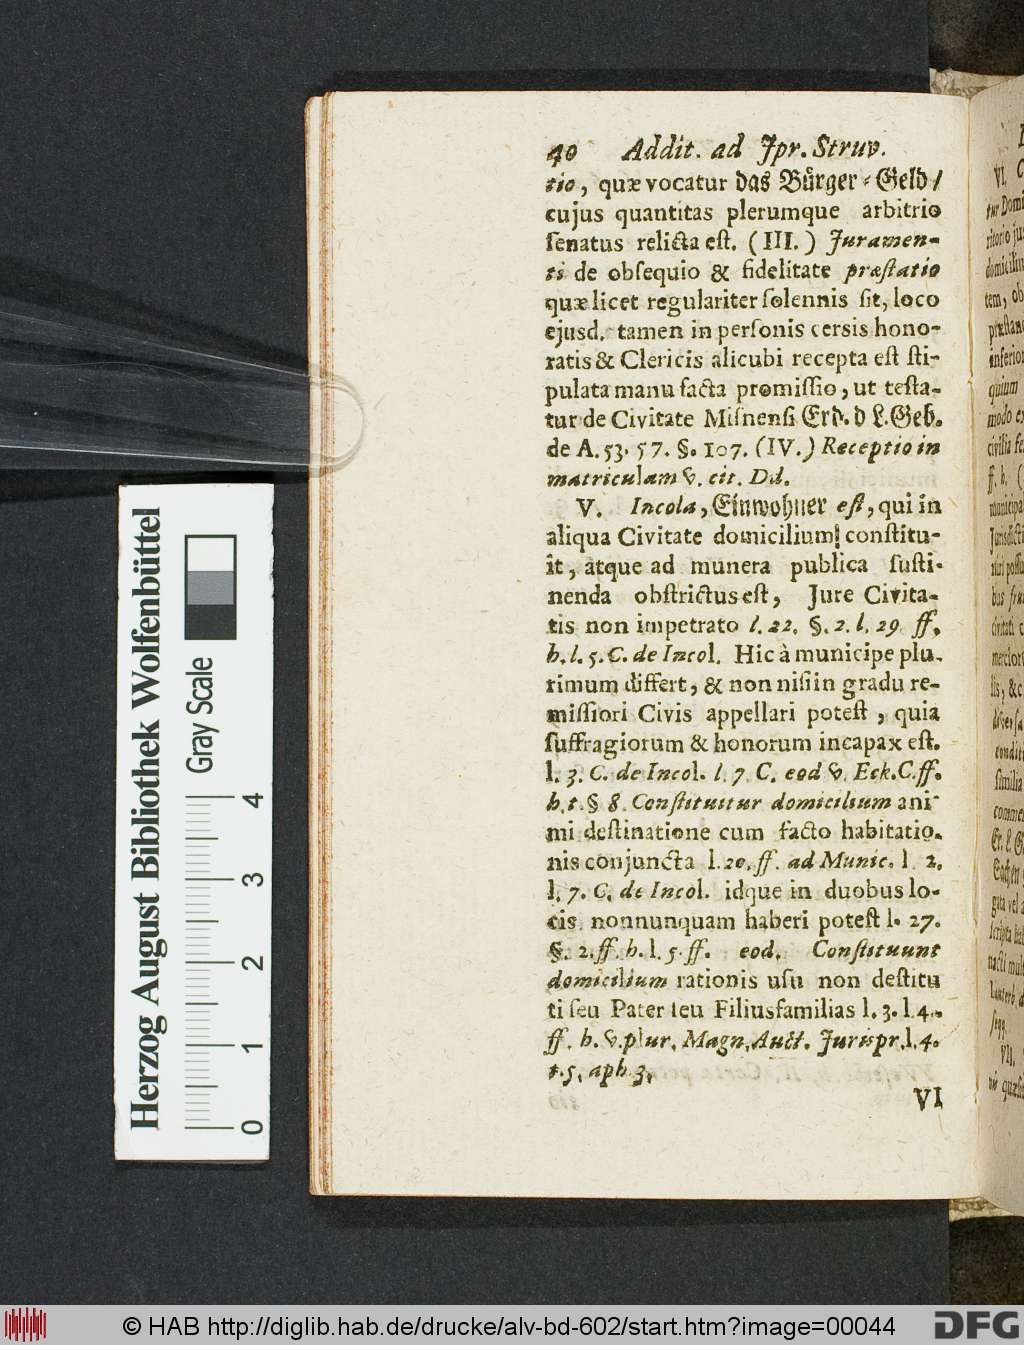 40 Addit. ad Jpr. Struv.
tio, quæ vocatur das Bürger-Geld/
cujus quantitas plerumque arbitrio
ſenatus relicta eſt. (III.) Juramen-
ti de obſequio & fidelitate præſtatio
quæ licet regulariter ſolennis ſit, loco
ejusd. tamen in perſonis cersis hono-
ratis & Clericis alicubi recepta eſt ſti-
pulata manu facta promiſſio, ut teſta-
tur de Civitate Miſnenſi Erd. d L. Geb.
de A. 53. 57. §. 107. (IV.) Receptio in
matriculam v. cit. Dd.
V. Incola, Einwohner eſt, qui in
aliqua Civitate domicilium conſtitu-
it, atque ad munera publica ſuſti-
nenda obſtrictus eſt, Jure Civita-
tis non impetrato l. 22. §. 2. l. 29 ff.
h. l. 5. C. de Incol. Hic à municipe plu-
rimum differt, & non niſi in gradu re-
miſſiori Civis appellari poteſt, quia
ſuffragiorum & honorum incapax eſt.
l. 3. C. de Incol. l. 7 C. eod v. Eck. C. ff.
h. t. § 8. Conſtituitur domicilium ani-
mi deſtinatione cum facto habitatio-
nis conjuncta l. 20. ff. ad Munic. l. 2.
l. 7. C. de Incol. idque in duobus lo-
cis nonnunquam haberi poteſt l. 27.
§. 2. ff. h. l. 5. ff. eod. Conſtituunt
domicilium rationis uſu non deſtitu
ti ſeu Pater ſeu Filiusfamilias l. 3. l. 4.
ff. h. v. plur. Magn. Auct. Jurispr. l. 4.
t. 5. aph 3.
VI
Herzog August Bibliothek Wolfenbüttel
Gray Scale
0 1 2 3 4
© HAB http://diglib.hab.de/drucke/alv-bd-602/start.htm?image=00044
DFG